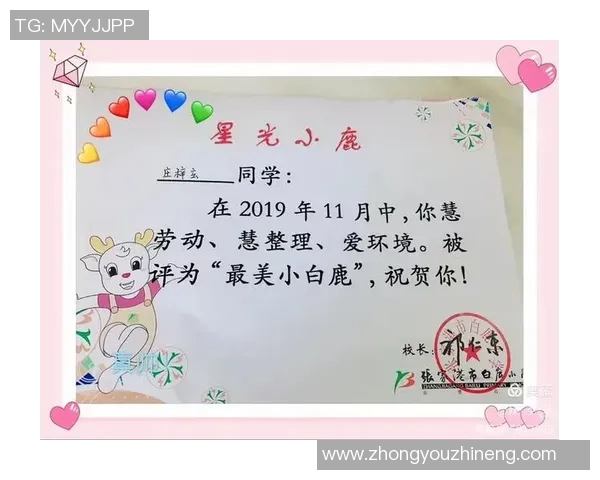 TG: MYYJJPP
星光小鹿
庄梓玄同学：
在2019年11月中，你慧
劳动、慧整理、爱环境。被
评为“最美小白鹿”，祝贺你！
校长：祁仁东
张家港市白鹿小
www.zhongyouzhineng.com